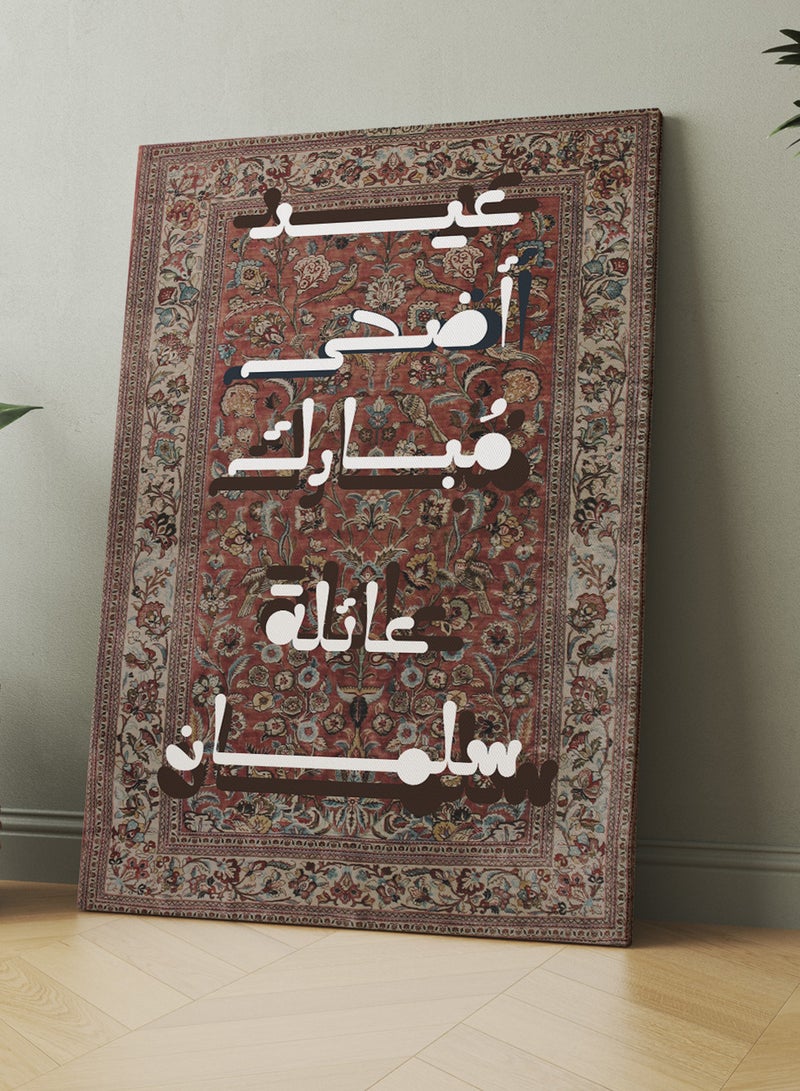 عيد
أضحى
مُبارك
عائلة
سلمان